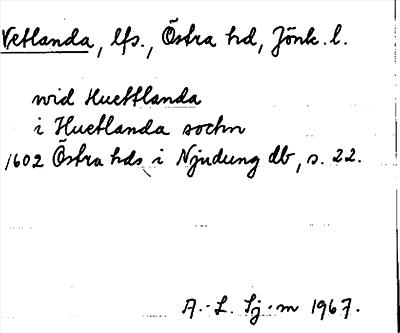 Vetlanda, lfs., Östra hd, Jönk. l.
wid Huettlanda
i Huetlanda sochn
1602 Östra hds i Njudung db, s. 22.
A.-L. Sj.-m 1967.